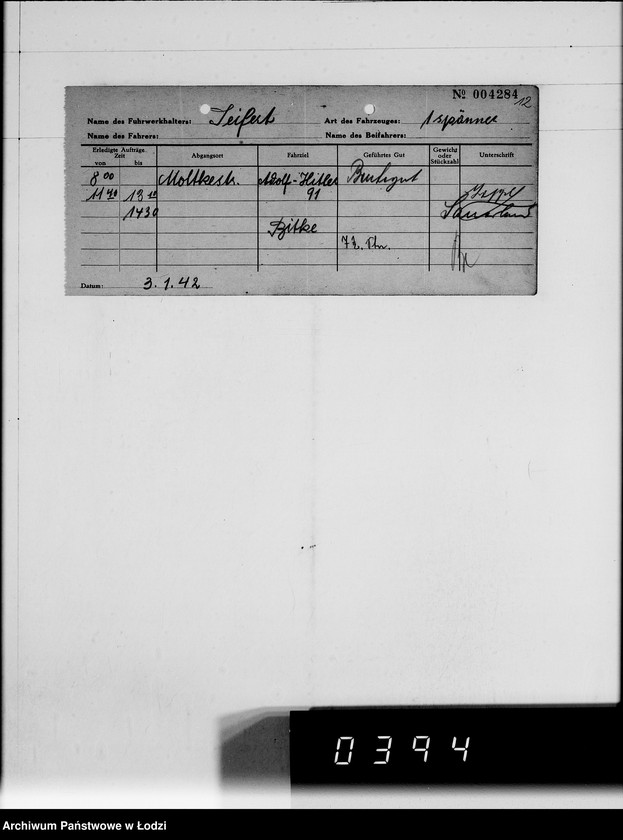 Nº 004284
12
Name des Fuhrwerkhalters: Seifert Art des Fahrzeuges: 1 spänner
Name des Fahrers: Name des Beifahrers:
Erledigte Aufträge. Zeit von bis Abgangsort Fahrziel Geführtes Gut Gewicht oder Stückzahl Unterschrift
8 00 Moltkestr. Adolf-Hitler
11 40 13 10 91
1430
7½ Stn.
Datum: 3.1.42
0394
Archiwum Państwowe w Łodzi